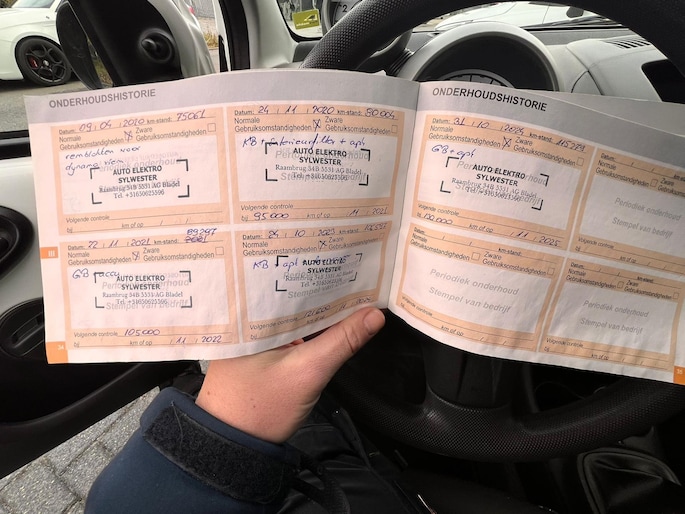 ONDERHOUDSHISTORIE
Datum: 09 / 04 / 2020 km-stand: 75061
Normale Gebruiksomstandigheden X Zware Gebruiksomstandigheden
remblokken voor
AUTO ELEKTRO
SYLWESTER
Raambrug 34B 5531 AG Bladel
Tel. +31650625506
Volgende controle
bij km of op
Datum: 24 / 11 / 2020 km-stand: 80004
Normale Gebruiksomstandigheden X Zware Gebruiksomstandigheden
KB + interieurfilter + apk
Periodiek onderhoud
AUTO ELEKTRO
SYLWESTER
Raambrug 34B 5531 AG Bladel
Tel. +31650625506
Stempel van bedrijf
Volgende controle
bij 95000 km of op / 11 / 2021
Datum: 22 / 11 / 2021 km-stand:
Normale Gebruiksomstandigheden X Zware Gebruiksomstandigheden
GB + accu
AUTO ELEKTRO
SYLWESTER
Raambrug 34B 5531 AG Bladel
Tel. +31650625506
Volgende controle
bij 105000 km of op / 11 / 2022
Normale Gebruiksomstandigheden X Zware Gebruiksomstandigheden
KB + apk
AUTO ELEKTRO
SYLWESTER
Raambrug 34B 5531 AG Bladel
Tel. +31650625506
Volgende controle
bij km of op
III
ONDERHOUDSHISTORIE
Datum: 31 / 10 / 2024 km-stand:
Normale Gebruiksomstandigheden X Zware Gebruiksomstandigheden
GB + apk
Periodiek onderhoud
AUTO ELEKTRO
SYLWESTER
Raambrug 34B 5531 AG Bladel
Tel. +31650625506
Stempel van bedrijf
Volgende controle
bij 130000 km of op / 11 / 2025
Datum: km-stand:
Normale Gebruiksomstandigheden Zware Gebruiksomstandigheden
Periodiek onderhoud
Stempel van bedrijf
Volgende controle
bij km of op
Datum: km-stand:
Normale Gebruiksomstandigheden Zware Gebruiksomstandigheden
Periodiek onderhoud
Stempel van bedrijf
Volgende controle
bij km of op
Datum: km-stand:
Normale Gebruiksomstandigheden Zware Gebruiksomstandigheden
Periodiek onderhoud
Stempel van bedrijf
Volgende controle
bij km of op